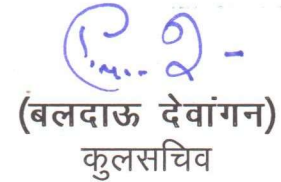 (बलदाऊ देवांगन)
कुलसचिव